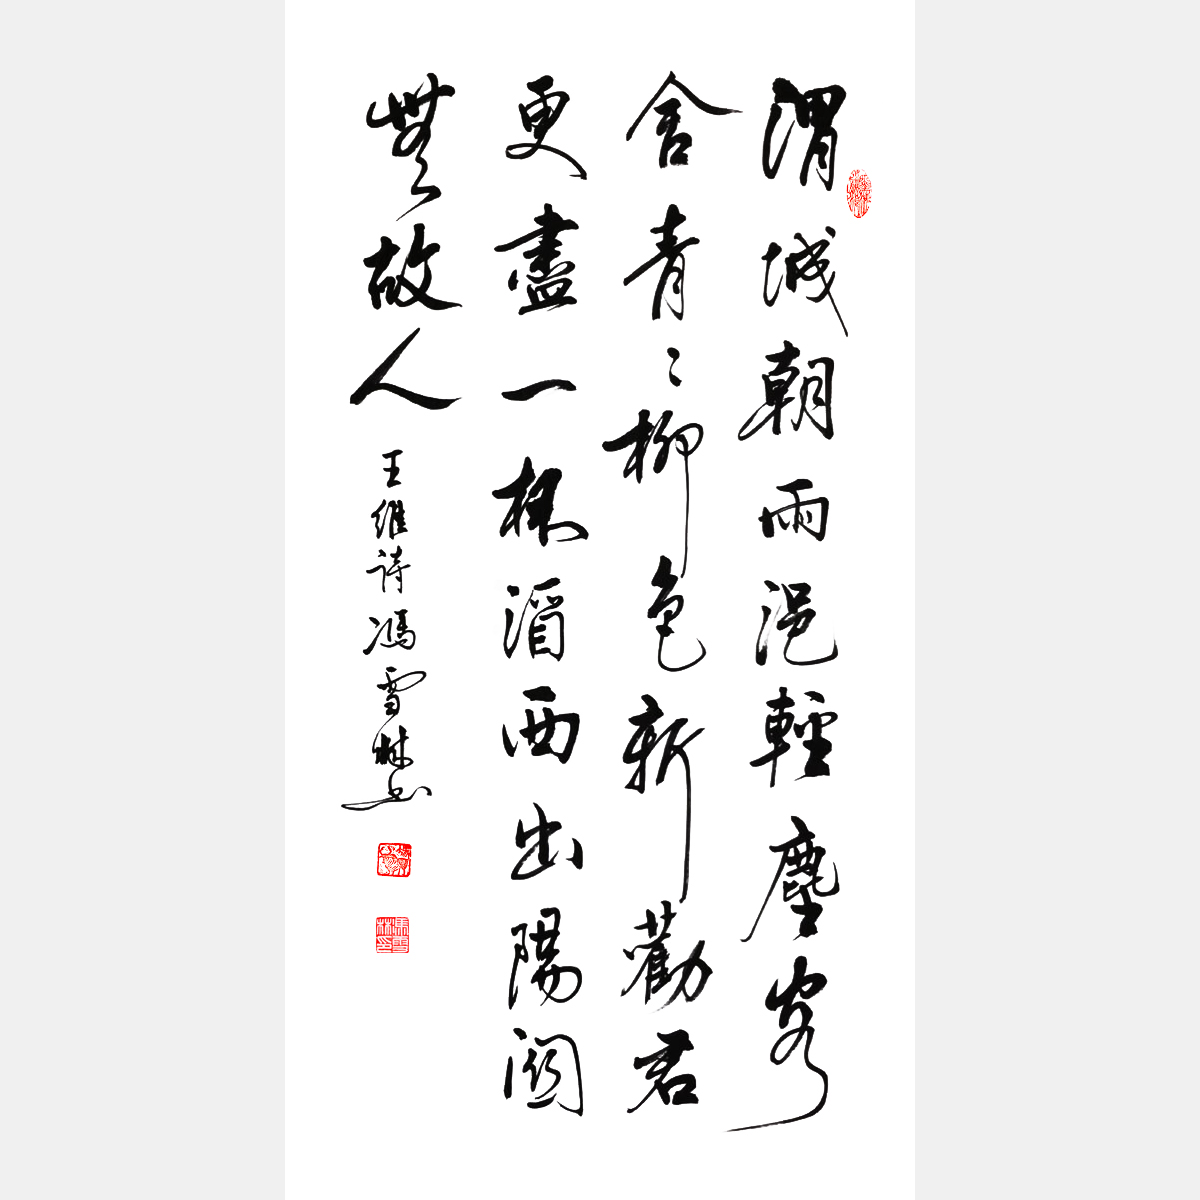 渭城朝雨浥輕塵客
舍青〻柳色新勸君
更盡一杯酒西出陽關
無故人
王維詩馮雪林書